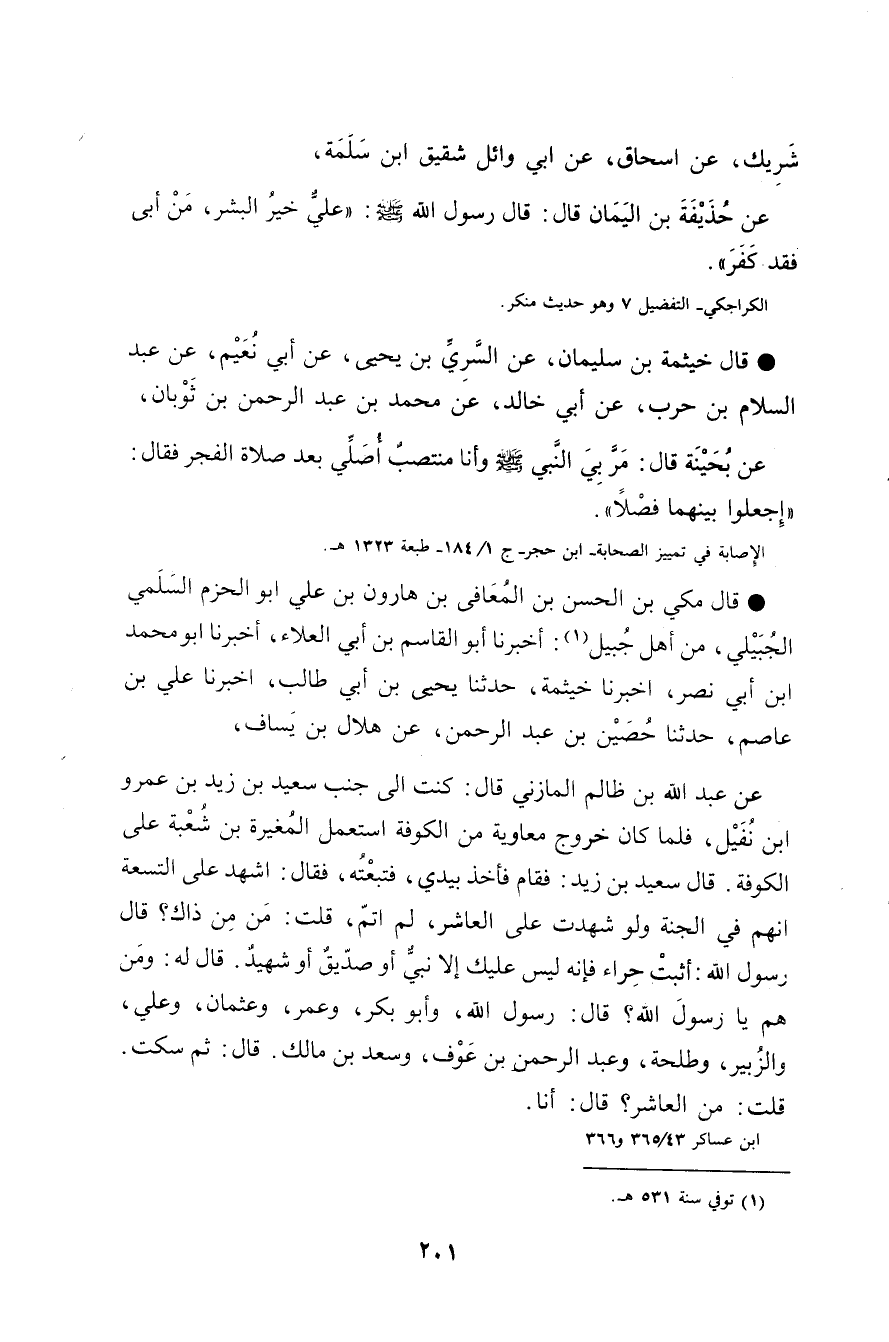 شَرِيك، عن اسحاق، عن ابي وائل شقيق ابن سَلَمَة،
عن حُذَيْفَةَ بن اليَمَان قال: قال رسول الله ﷺ: «عليٌّ خيرُ البشر، مَنْ أبى
فقد كَفَرَ».
الكراجكي- التفضيل ٧ وهو حديث منكر.
● قال خيثمة بن سليمان، عن السَّرِيِّ بن يحيى، عن أبي نُعَيْم، عن عبد
السلام بن حرب، عن أبي خالد، عن محمد بن عبد الرحمن بن ثَوْبان،
عن بُحَيْنَة قال: مَرَّ بِيَ النَّبي ﷺ وأنا منتصبٌ أُصَلِّي بعد صلاة الفجر فقال:
«إجعلوا بينهما فصْلاً».
الإصابة في تمييز الصحابة- ابن حجر- ج ١/ ١٨٤- طبعة ١٣٢٣ هـ.
● قال مكي بن الحسن بن المُعَافى بن هارون بن علي ابو الحزم السَلَمي
الجُبَيْلي، من أهل جُبيل(١): أخبرنا أبو القاسم بن أبي العلاء، أخبرنا ابو محمد
ابن أبي نصر، اخبرنا خيثمة، حدثنا يحيى بن أبي طالب، اخبرنا علي بن
عاصم، حدثنا حُصَيْن بن عبد الرحمن، عن هلال بن يَساف،
عن عبد الله بن ظالم المازني قال: كنت الى جنب سعيد بن زيد بن عمرو
ابن نُفَيْل، فلما كان خروج معاوية من الكوفة استعمل المُغيرة بن شُعْبة على
الكوفة. قال سعيد بن زيد: فقام فأخذ بيدي، فتبعْتُه، فقال: اشهد على التسعة
انهم في الجنة ولو شهدت على العاشر، لم اتمّ، قلت: مَن مِن ذاك؟ قال
رسول الله: أثبتْ حِراء فإنه ليس عليك إلا نبيٌّ أو صدّيقٌ أو شهيدٌ. قال له: ومَن
هم يا رسولَ الله؟ قال: رسول الله، وأبو بكر، وعمر، وعثمان، وعلي،
والزُبير، وطلحة، وعبد الرحمن بن عَوْف، وسعد بن مالك. قال: ثم سكت.
قلت: من العاشر؟ قال: أنا.
ابن عساكر ٣٦٥/٤٣ و٣٦٦
(١) توفي سنة ٥٣١ هـ.
٢٠١